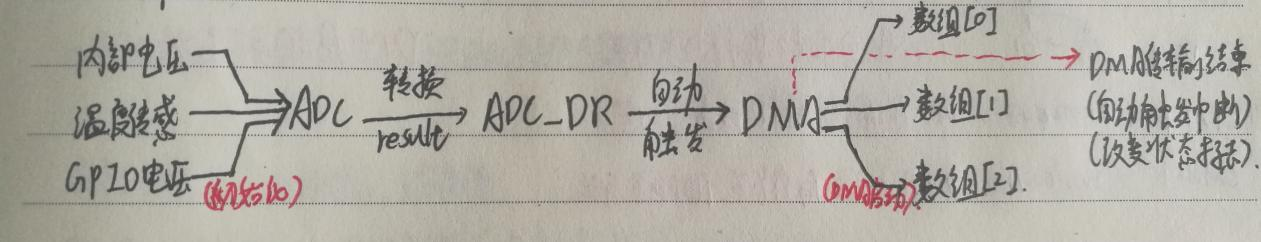 内部电压
温度传感
GPIO电压
ADC
转换
result
ADC_DR
自动
触发
DMA
数组[0]
数组[1]
数组[2].
DMA传输结束
(自动触发中断)
(改变状态标志).
(DMA启动)